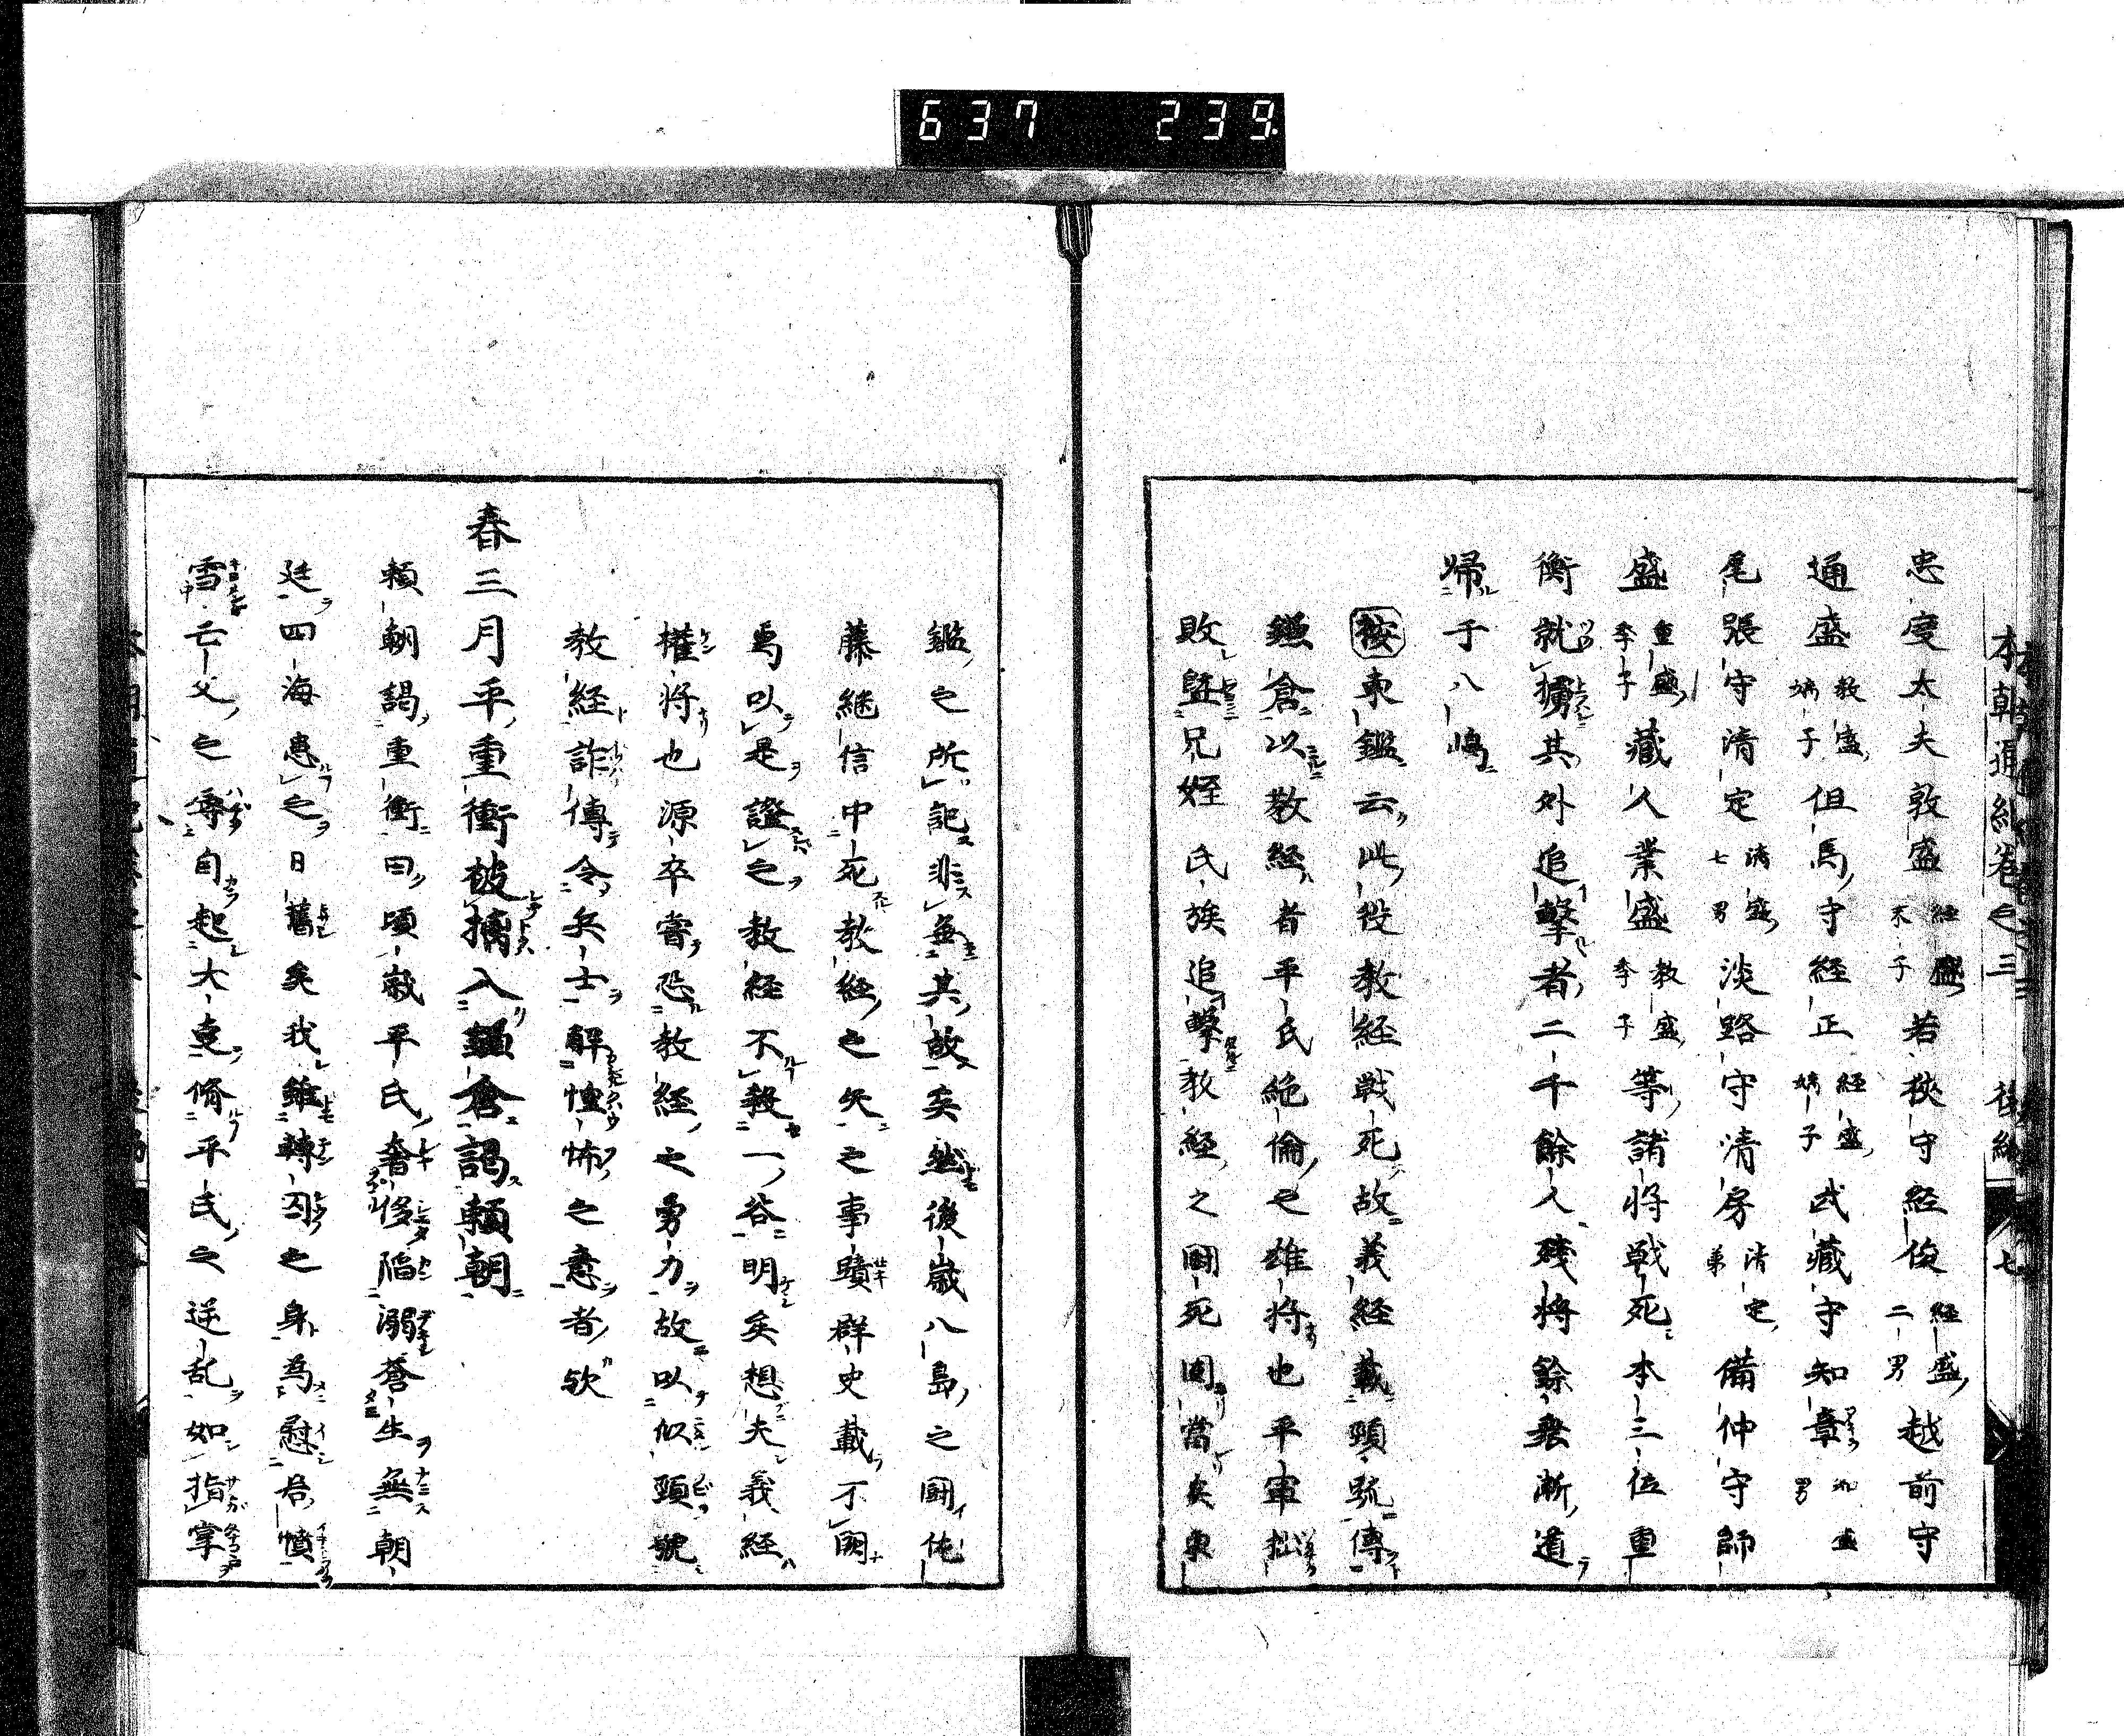 637 239
忠度太夫敦盛経盛末子若狭守経俊経盛二男越前守
通盛教盛嫡子但馬守経正経盛嫡子武藏守知章知盛男
尾張守清定清盛七男淡路守清房清定弟備仲守師
盛重盛季子藏人業盛教盛季子等諸将戦死本三位重
衡就擄其外追撃者二千餘人残将餘衆漸遁
帰于八嶋
按東鑑云此役教経戦死故義経載頸號傳
鎌倉以教経者平氏絶倫之雄将也平軍拙
敗曁兄姪氏族追撃教経之闘死固當矣東
鑑之所記非無其故矣然後歳八島之闘佐
藤継信中死教経之矢之事蹟群史載不闕
焉以是證之教経不殺一谷明矣想夫義経
權将也源卒甞恐教経之勇力故以似頸號
教経詐傳令兵士解惶怖之意者欤
春三月平重衝被擒入鎌倉謁頼朝
頼朝謁重衝曰頃歳平氏奢侈陥溺蒼生無朝
廷四海患之日舊矣我雖轉囚之身為慰君憤
雪亡父之辱自起大克脩平氏之逆乱如指掌